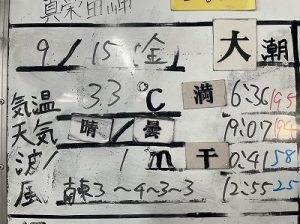 真栄田岬
9/15(金) 大潮
気温 33℃ 満 6:36 195
天気 晴/曇 19:07 194
波 1m 干 0:41 58
風 南東3〜4〜3〜3 12:55 25